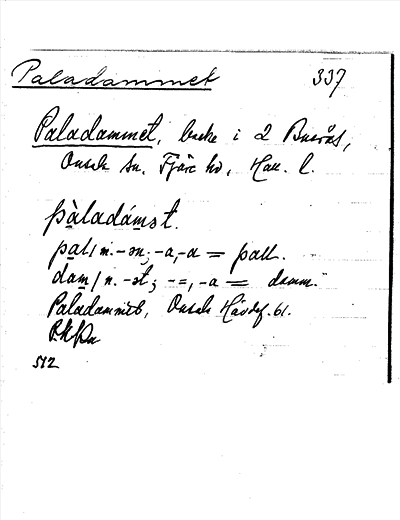 Paladammet 337
Paladammet, backe i 2 Buerås,
Onsala sn, Fjäre hd, Hall. l.
pàladámət.
pal/ m. -ən; -a, -a = pall.
dam/ n. -ət; -=, -a = damm.
Paladammet, Onsala Hävdef. 61.
512